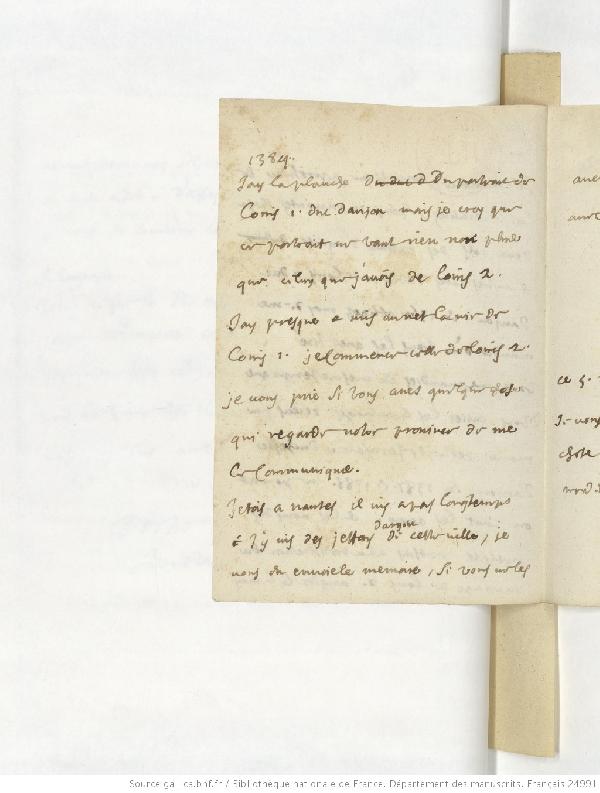 1384.
Jay la planche du portrait de
Louis 1. duc danjou mais je croy que
ce portrait ne vaut rien non plus
que celuy que javois de louis 2.
Jay presque mis au net la vie de
Louis 1. je commence celle de louis 2.
je vous prie si vous aves quelque chose
qui regarde notre province de me
le communique.
Jetois a nantes il ny a pas longtemps
Jy vis des jettons dargent de cette ville, je
vous en envoie le memoire, si vous ne les
avec
ce 5.
Je vous
chose
Source gallica.bnf.fr / Bibliothèque nationale de France. Département des manuscrits. Français 24991